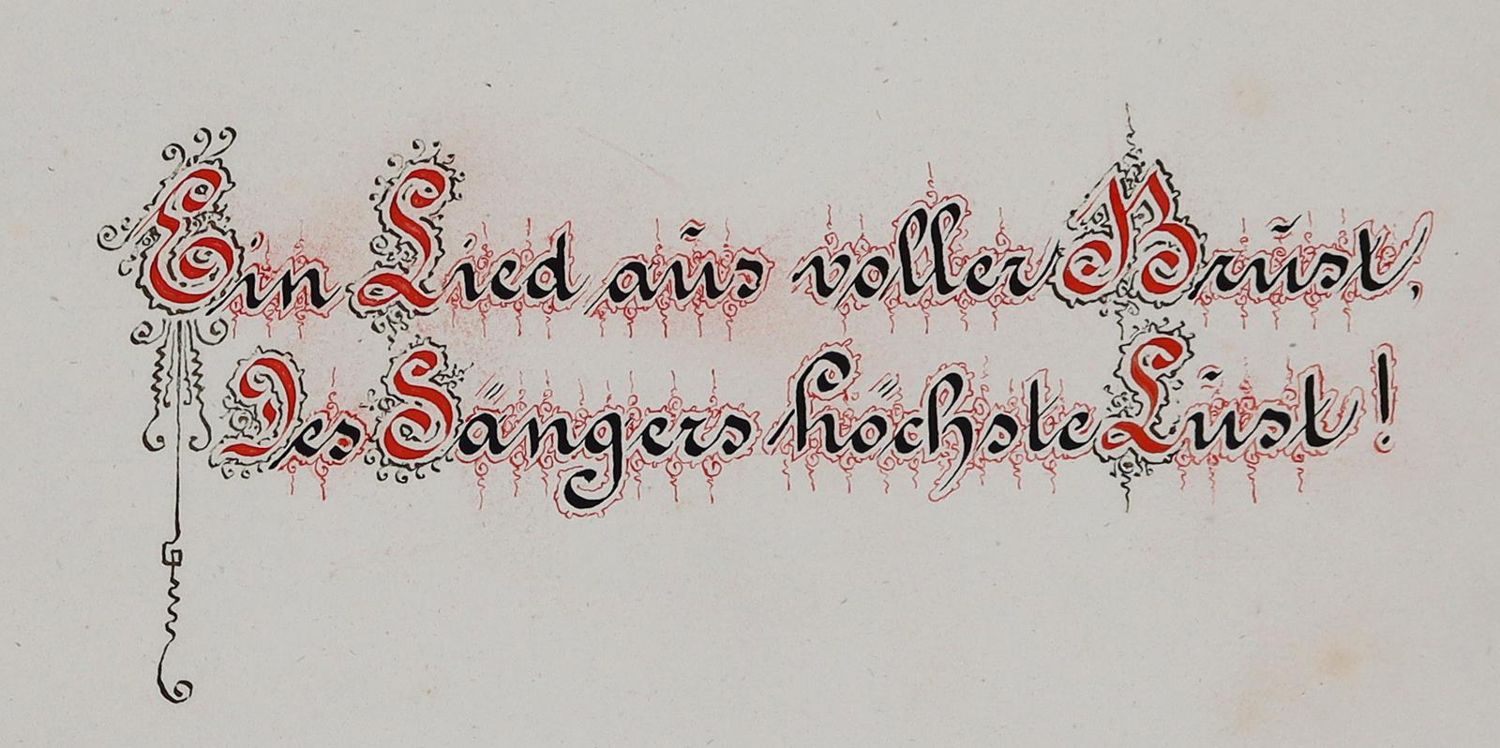 Ein Lied aus voller Brust,
Des Sängers höchste Lust!